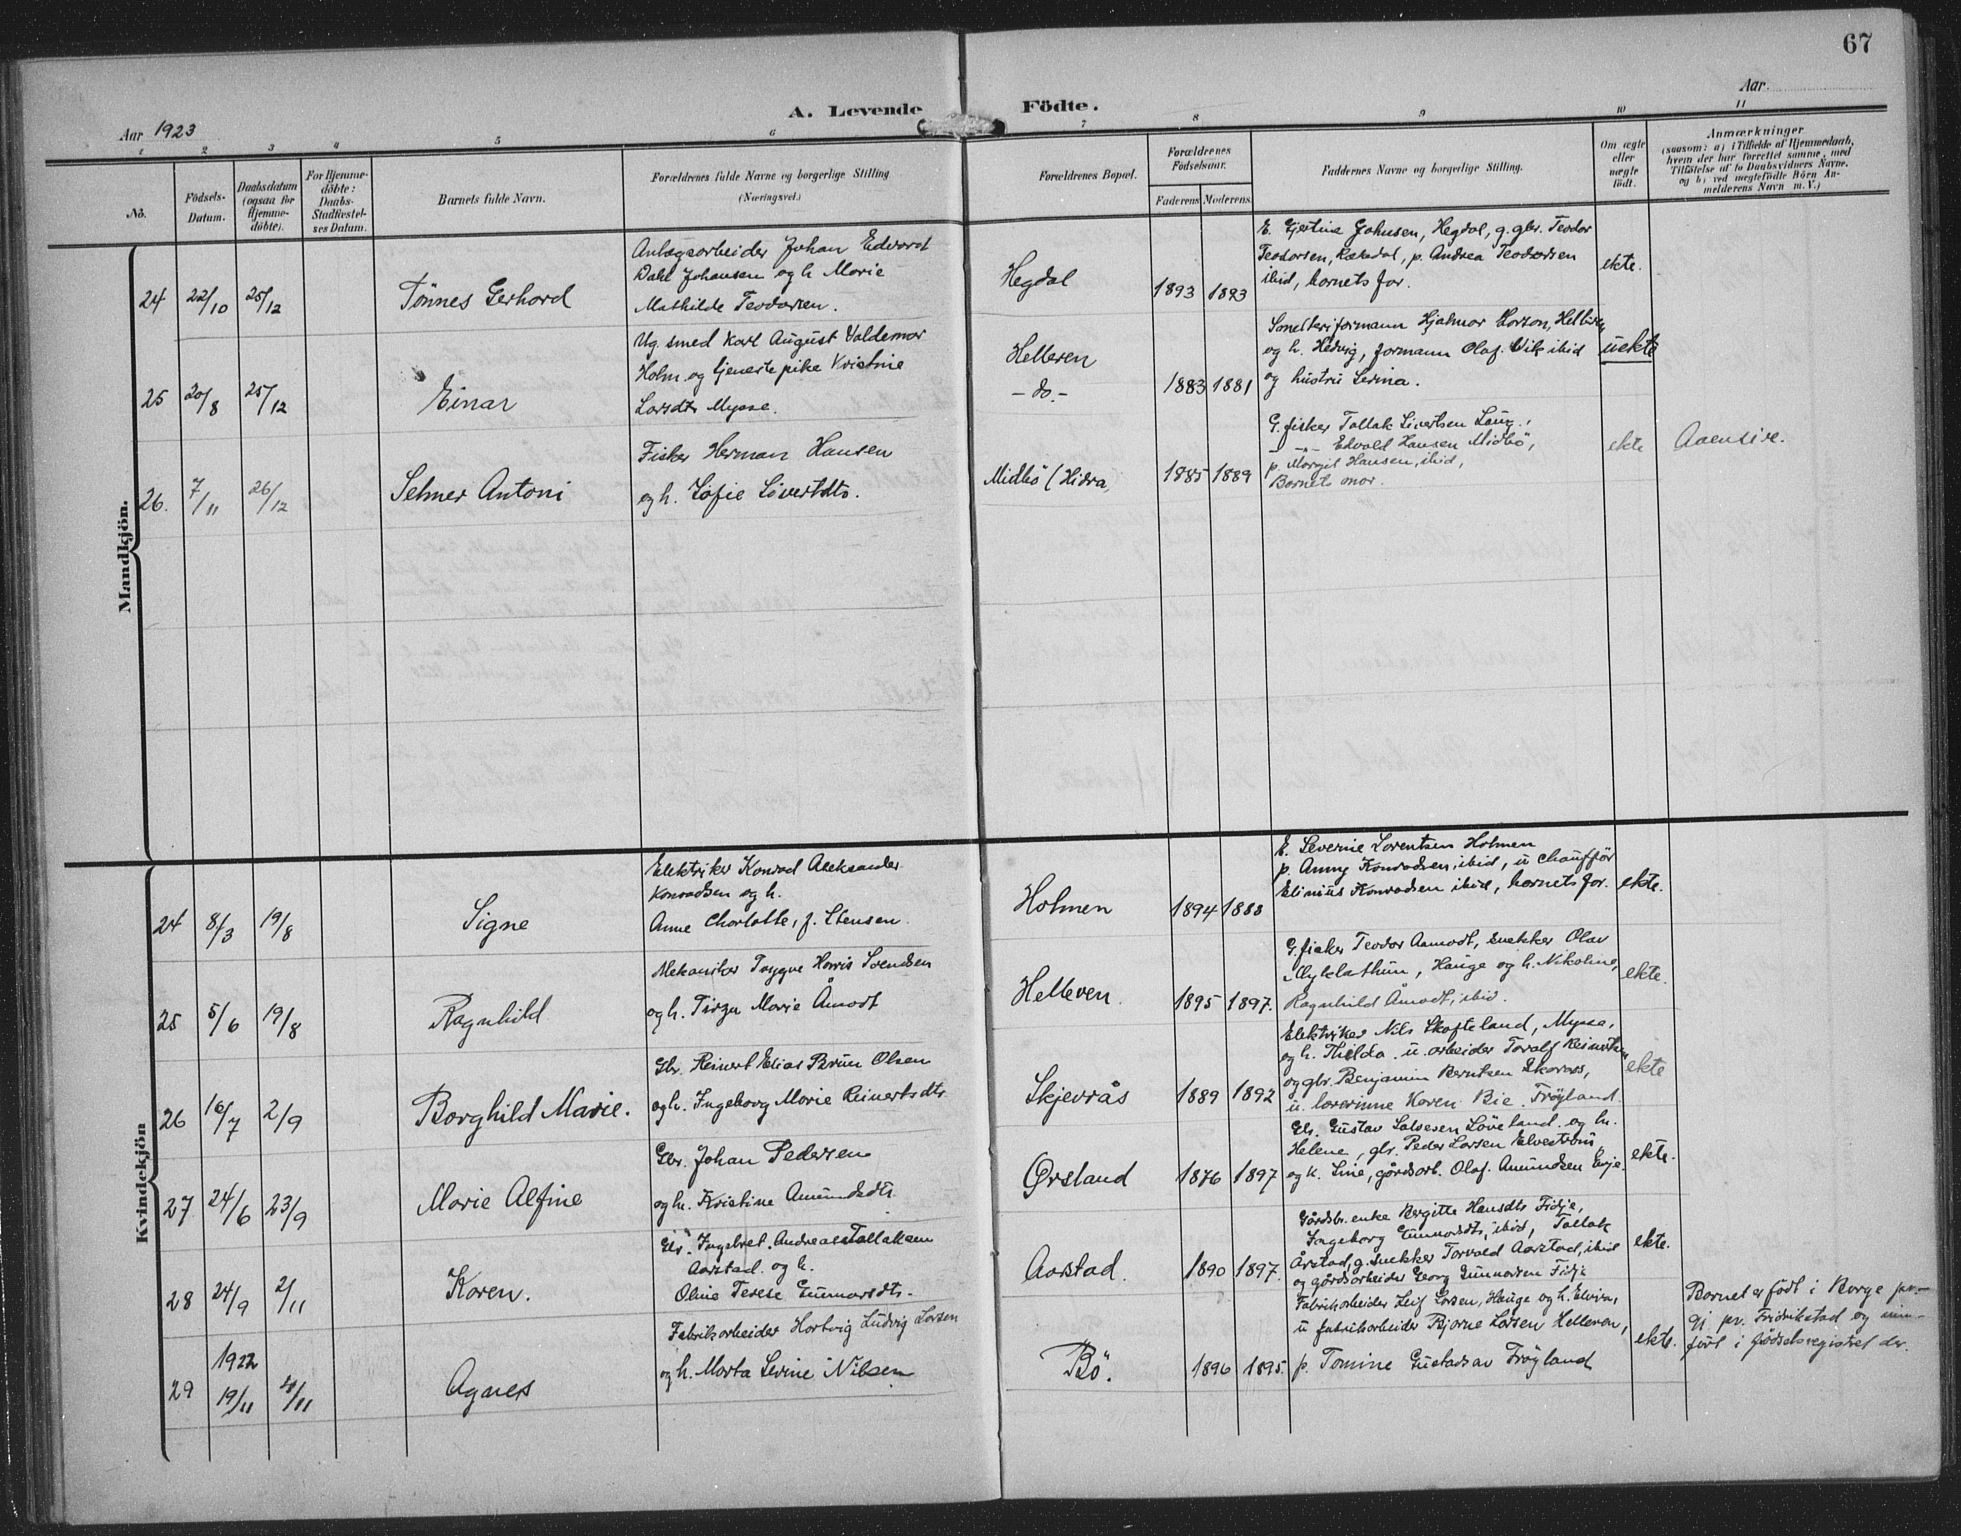 67
A. Levende Födte.
Aar 1923
Aar
1 2 3 4 5 6 7 8 9 10 11
No.
Födsels-
Datum.
Daabsdatum
(ogsaa for
Hjemme-
döbte).
For Hjemme-
döbte:
Daabs-
Stadfæstel-
ses Datum.
Barnets fulde Navn.
Forældrenes fulde Navne og borgerlige Stilling
(Næringsvei.)
Forældrenes Bopæl.
Forældrenes
Födselsaar.
Faderens Moderens
Faddernes Navne og borgerlige Stilling.
Om ægte
eller
uægte
födt.
Anmærkninger
(saasom: a) i Tilfælde af Hjemmedaab,
hvem der har forrettet samme, med
Tilføielse af to Daabsvidners Navne,
og b) ved uægtefødte Börn An-
melderens Navn m. V.)
Mandkjön.
24 22/10 25/12 Tönnes Gerhard
Anlægsarbeider Johan Edvard
Dahl Johansen og h. Marie
Mathilde Teodorsen.
Hegdal 1893 1893
E. Gjertine Johnsen, Hegdal, g. gbr. Teodor
Teodorsen, p. Andrea Teodorsen
ibid, barnets far.
ekte.
25 20/8 25/12 Einar
Ug. smed Karl August Valdemar
Holm og tjenestepike Kristine
Larsdtr Mysse.
Helleren
- do. - 1883 1881
Smelteriformann Hjalmar Larson, Helleren
og h. Hedvig, formann Olaf Vik ibid
og hustru Serina.
uekte
26. 7/11 26/12 Selmer Antoni
Fisker Herman Hansen
og h. Sofie Sivertdtr.
Midbö (Hidra) 1885 1889
G. fisker Tallak Sivertsen
- " - Edvald Hansen Midbö,
p. Margit Hansen, ibid,
Barnets mor.
ekte
Aaensire.
Kvindekjön
24 8/3 19/8 Signe
Elektriker Konrad Aleksander
Konradsen og h.
Anne Charlotte, f. Stensen.
Holmen 1894 1888
E. Severine Lorentsen Holmen
p. Anny Konradsen, ibid, u. chaufför
Elinius Konradsen ibid, barnets far.
ekte.
25 5/6 19/8 Ragnhild
Mekaniker Trygve Harris Svendsen
og h. Tirza Marie Åmodt
Helleren. 1895 1897.
G. fisker Teodor Aamodt, snekker Olav
Myklathun, Hauge og h. Nikoline,
Ragnhild Åmodt, ibid.
ekte.
26 16/7 2/9 Borghild Marie.
Gbr. Reinert Elias Brun Olsen
og h. Ingeborg Marie Reinertsdtr
Skjevrås 1889 1892
Elektriker Nils Skofteland, Mysse,
og h. Thilda. u. arbeider Toralf Reinertsen
og gbr. Benjamin Berntsen
u. lærerinne Karen Bie. Fröyland
ekte
27 24/6 23/9 Marie Alfine
Gbr. Johan Pedersen
og h. Kristine Amundsdtr.
Ørsland 1876 1897
Gbr. Gustav Salvesen Löveland. og h.
Helene, gbr. Peder Larsen Elveström
og h. Sine, gårdsarb. Olaf Amundsen Eeje.
ekte.
28 24/9 2/11 Karen.
Gbr. Ingebret Andreas Tallaksen
Aarstad. og h.
Oline Terese Gunnarsdtr.
Aarstad. 1890 1897.
Gårdbr. enke Bergitte Hansdtr Fidje,
Ingeborg Gunnarsdtr, ibid, Tallak
Årstad, g. snekker Torvald Aarstad, ibid
og gårdsarbeider Georg Gunnarsen Fidje
ekte.
29 1922 19/11 4/11 Agnes
Fabrikarbeider Hartvig Ludvig Larsen
og h. Marta Serine Nilsen
Bö. 1896 1895.
Fabrikarbeider Leif Larsen, Hauge og h. Elvira,
u. fabrikarbeider Bjarne Larsen Helleren,
p. Tomine Gustadsav Fröyland
ekte.
Barnet er född i Borge pr.
gj. pr. Fridrikstad og inn-
fört i födselsregistret der.